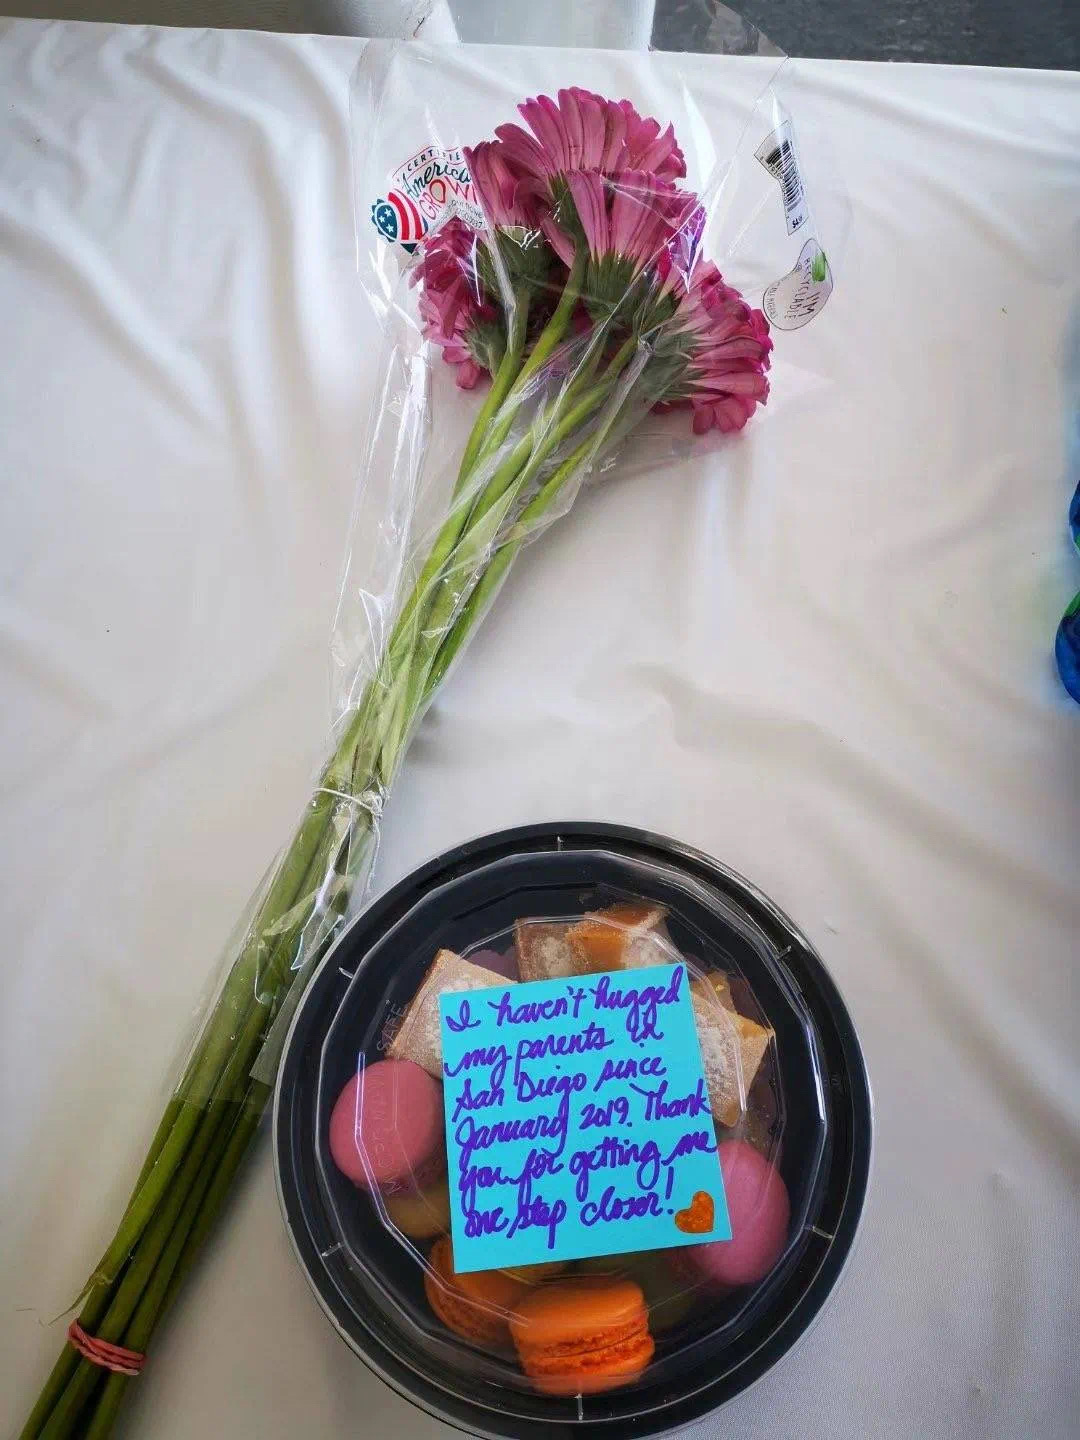 CERTIFIED
American
GROWN
I'M
RECYCLABLE
SAFE
MICROWAVE
I haven't hugged
my parents in
San Diego since
January 2019. Thank
you for getting me
one step closer!